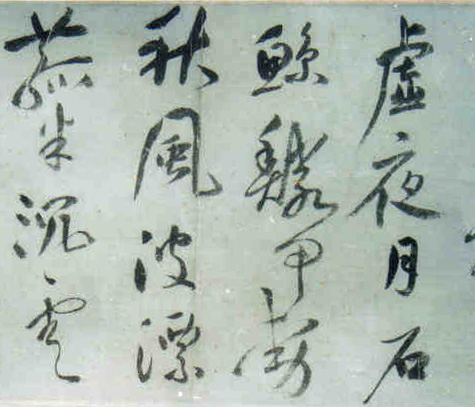 虛夜月石
鯨鱗甲動
秋風波漂
菰米沉雲